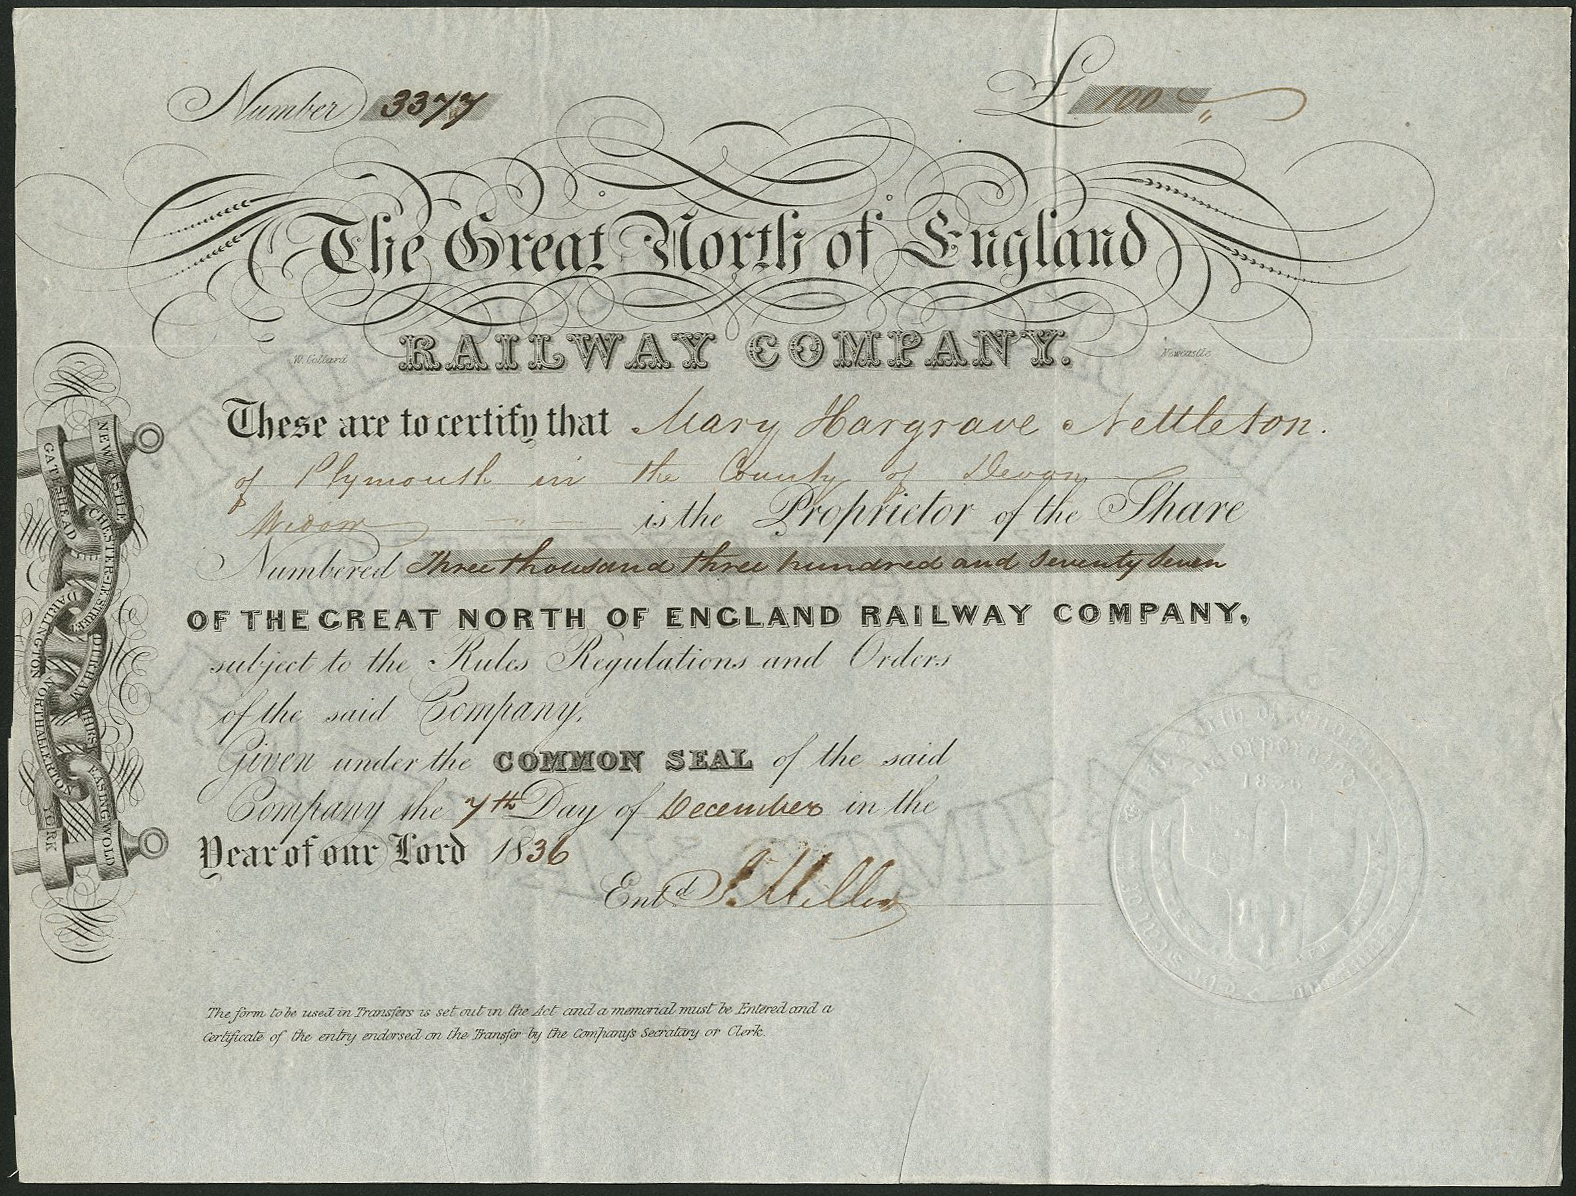 Number 3377 £ 100 〃
The Great North of England
RAILWAY COMPANY.
W. Collard Newcastle
These are to certify that Mary Hargrave Nettleton.
of Plymouth in the County of Devon
Widow 〃 is the Proprietor of the Share
Numbered Three thousand three hundred and Seventy Seven
OF THE GREAT NORTH OF ENGLAND RAILWAY COMPANY,
subject to the Rules Regulations and Orders
of the said Company.
Given under the COMMON SEAL of the said
Company the 7th Day of December in the
Year of our Lord 1836
Entd
The form to be used in Transfers is set out in the Act and a memorial must be Entered and a
Certificate of the entry endorsed on the Transfer by the Company's Secratary or Clerk.
NEWCASTLE
GATESHEAD
CHESTER-LE-STREET
DARLINGTON
DURHAM
NORTHALLERTON
THIRSK
EASINGWOLD
YORK
North of England
Incorporated
1836